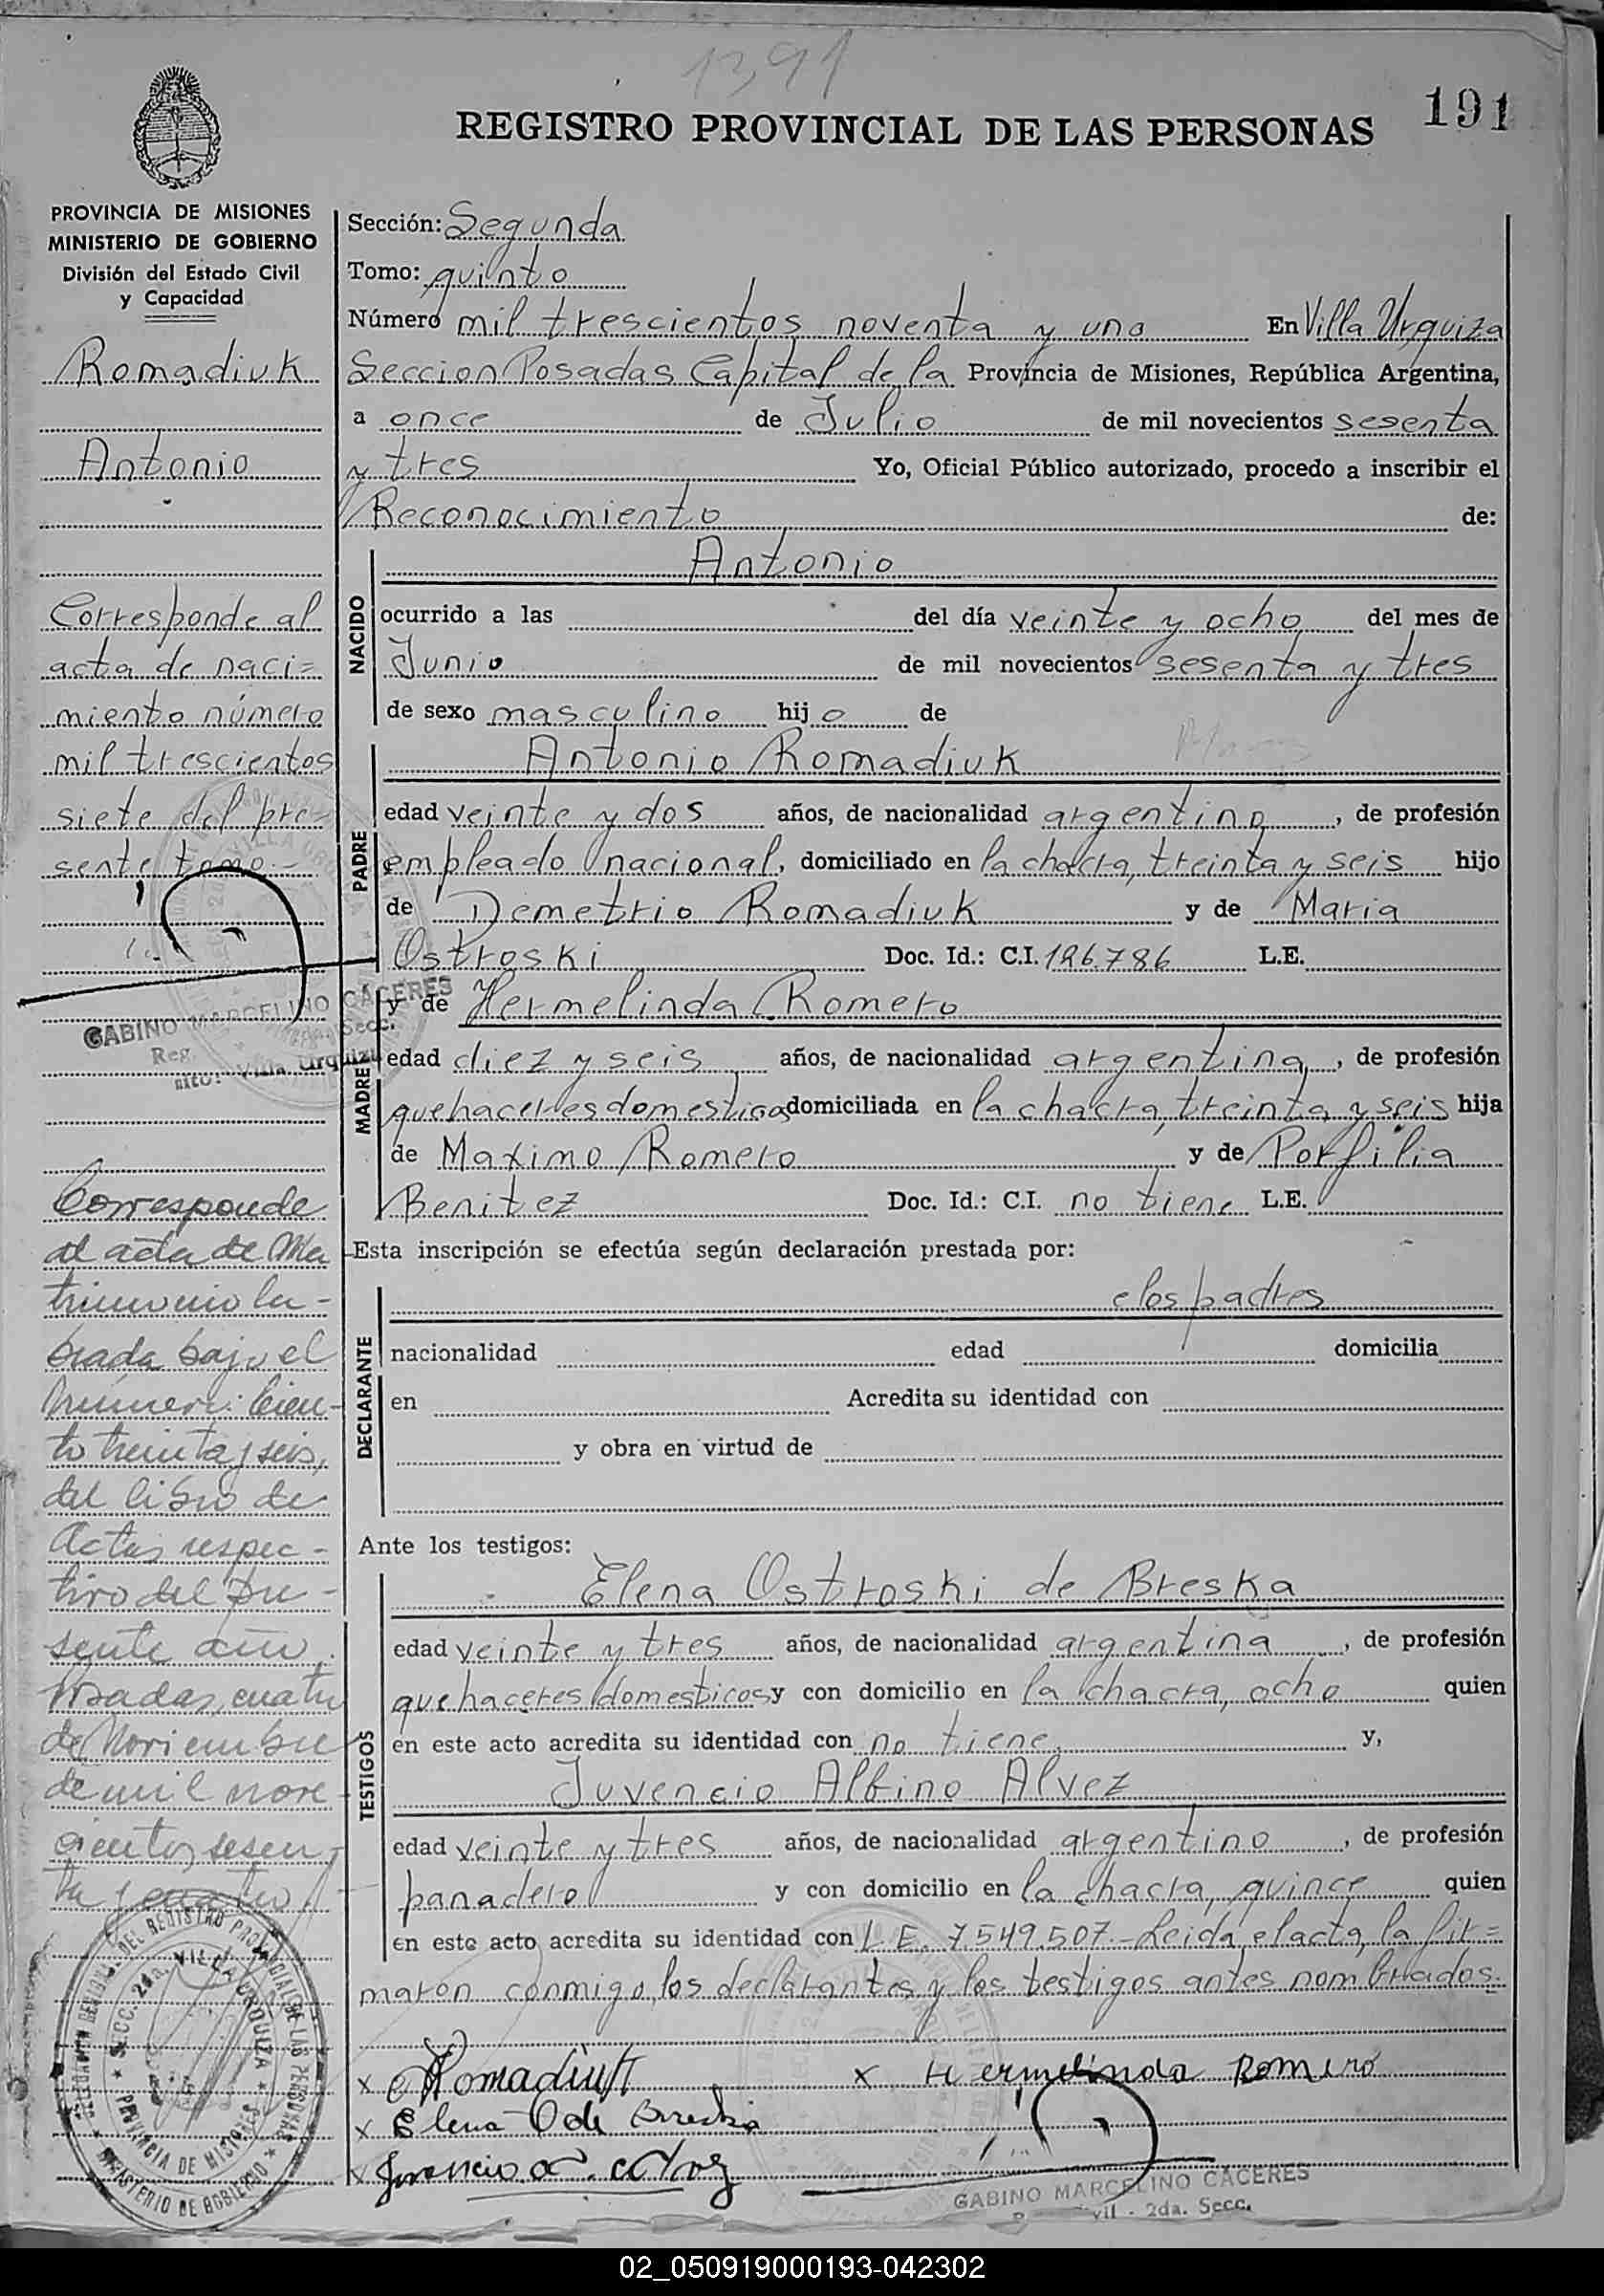 1391
191
REGISTRO PROVINCIAL DE LAS PERSONAS
PROVINCIA DE MISIONES
MINISTERIO DE GOBIERNO
División del Estado Civil
y Capacidad
Romadiuk
Antonio
Corresponde al
acta de naci=
miento número
mil trescientos
siete del pre-
sente tomo.-
GABINO MARCELINO CÁCERES
Corresponde
al acta de Ma
trimonio la-
brada bajo el
número: Cien-
to treinta y seis,
del libro de
Actas respec-
tivo del pre-
sente año.
Posadas, cuatro
de Noviembre
de mil nove
cientos sesen-
ta y cuatro.
SECC. 2da. VILLA URQUIZA
PROVINCIA DE MISIONES
MINISTERIO DE GOBIERNO
Sección: Segunda
Tomo: quinto
Número mil trescientos noventa y uno En Villa Urquiza
Seccion Posadas Capital de la Provincia de Misiones, República Argentina,
a once de Julio de mil novecientos sesenta
y tres Yo, Oficial Público autorizado, procedo a inscribir el
Reconocimiento de:
NACIDO
Antonio
ocurrido a las del día veinte y ocho del mes de
Junio de mil novecientos sesenta y tres
de sexo masculino hijo de
PADRE
Antonio Romadiuk
edad veinte y dos años, de nacionalidad argentino, de profesión
empleado nacional, domiciliado en la chacra, treinta y seis hijo
de Demetrio Romadiuk y de Maria
Ostroski Doc. Id.: C.I. 126.786 L.E.
MADRE
y de Hermelinda Romero
edad diez y seis años, de nacionalidad argentina, de profesión
quehaceres domesticos domiciliada en la chacra, treinta y seis hija
de Maximo Romero y de Porfilia
Benitez Doc. Id.: C.I. no tiene L.E.
Esta inscripción se efectúa según declaración prestada por:
DECLARANTE
los padres
nacionalidad edad domicilia
en Acredita su identidad con
y obra en virtud de
Ante los testigos:
TESTIGOS
Elena Ostroski de Breska
edad veinte y tres años, de nacionalidad argentina, de profesión
quehaceres domesticos y con domicilio en la chacra, ocho quien
en este acto acredita su identidad con no tiene y,
Juvencio Albino Alvez
edad veinte y tres años, de nacionalidad argentino, de profesión
panadero y con domicilio en la chacra, quince quien
en este acto acredita su identidad con L E. 7549.507.- Leida el acta, la fir=
maron conmigo, los declarantes y los testigos antes nombrados.
x Romadiuk x Hermelinda Romero
x Elena O de Breska
x Juvencio A. Alvez
GABINO MARCELINO CÁCERES
2da. Secc.
02_050919000193-042302